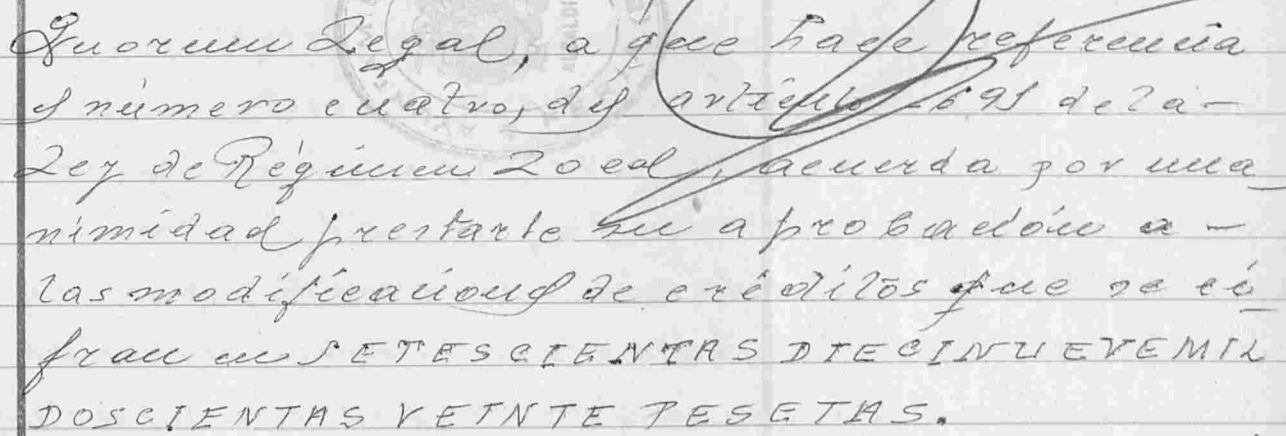 Quorum Legal, a que hace referencia
el número cuatro, del artículo -691 de la-
Ley de Régimen Local, acuerda por una_
nimidad prestarle su aprobación a -
las modificaciones de créditos que se ci_
fran en SETESCIENTAS DIECINUEVE MIL
DOSCIENTAS VEINTE PESETAS.